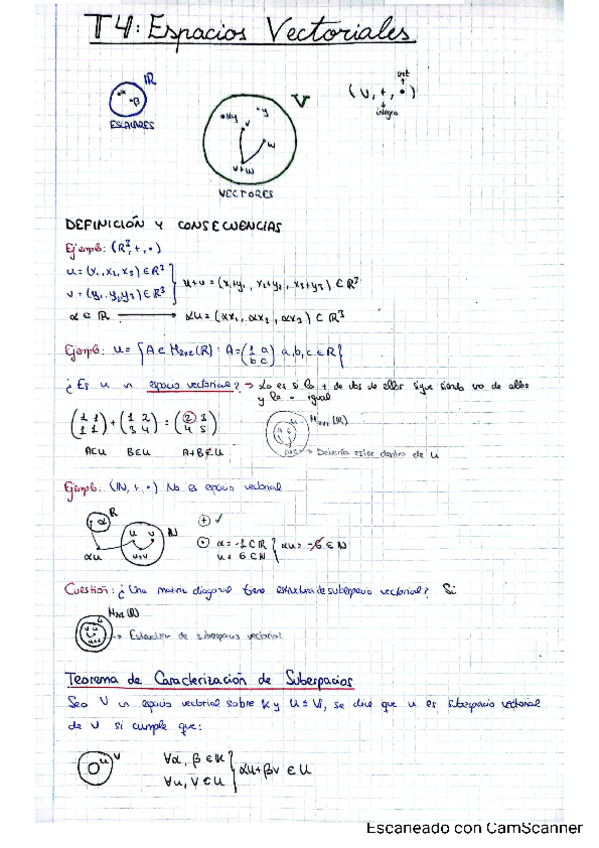 T4: Espacios Vectoriales
IR
α
β
ESCALARES
V
y
v
w
v+w
VECTORES
ext
(V, +, •)
interna
DEFINICIÓN Y CONSECUENCIAS
Ejemplo: (R³, +, •)
u = (x₁, x₂, x₃) ∈ R³
v = (y₁, y₂, y₃) ∈ R³
u+v = (x₁+y₁, x₂+y₂, x₃+y₃) ∈ R³
α ∈ R → αu = (αx₁, αx₂, αx₃) ∈ R³
Ejemplo: U = {A ∈ M₂ₓ₂(R) : A = (1 a b c) a, b, c ∈ R}
¿Es U un espacio vectorial? → Lo es si la + de dos de ellos sigue siendo uno de ellos
y la • igual
(1 1 1 1) + (1 2 3 4) = (2 3 4 5)
A∈U B∈U A+B∉U
M₂ₓ₂(R)
A+B → Debería estar dentro de U
Ejemplo: (IN, +, •) No es espacio vectorial
R
α
αu
u v
u+v
N
⊕ ✓
⊙ α = -1 ∈ R
u = 6 ∈ N
αu = -6 ∉ N
Cuestión: ¿Una matriz diagonal tiene estructura de subespacio vectorial? Si
→ Estructura de subespacio vectorial
Teorema de Caracterización de Subespacios
Sea V un espacio vectorial sobre K y U ⊆ V, se dice que U es subespacio vectorial
de V si cumple que:
U V
∀α, β ∈ K
∀u, v ∈ U
αu+βv ∈ U
Escaneado con CamScanner